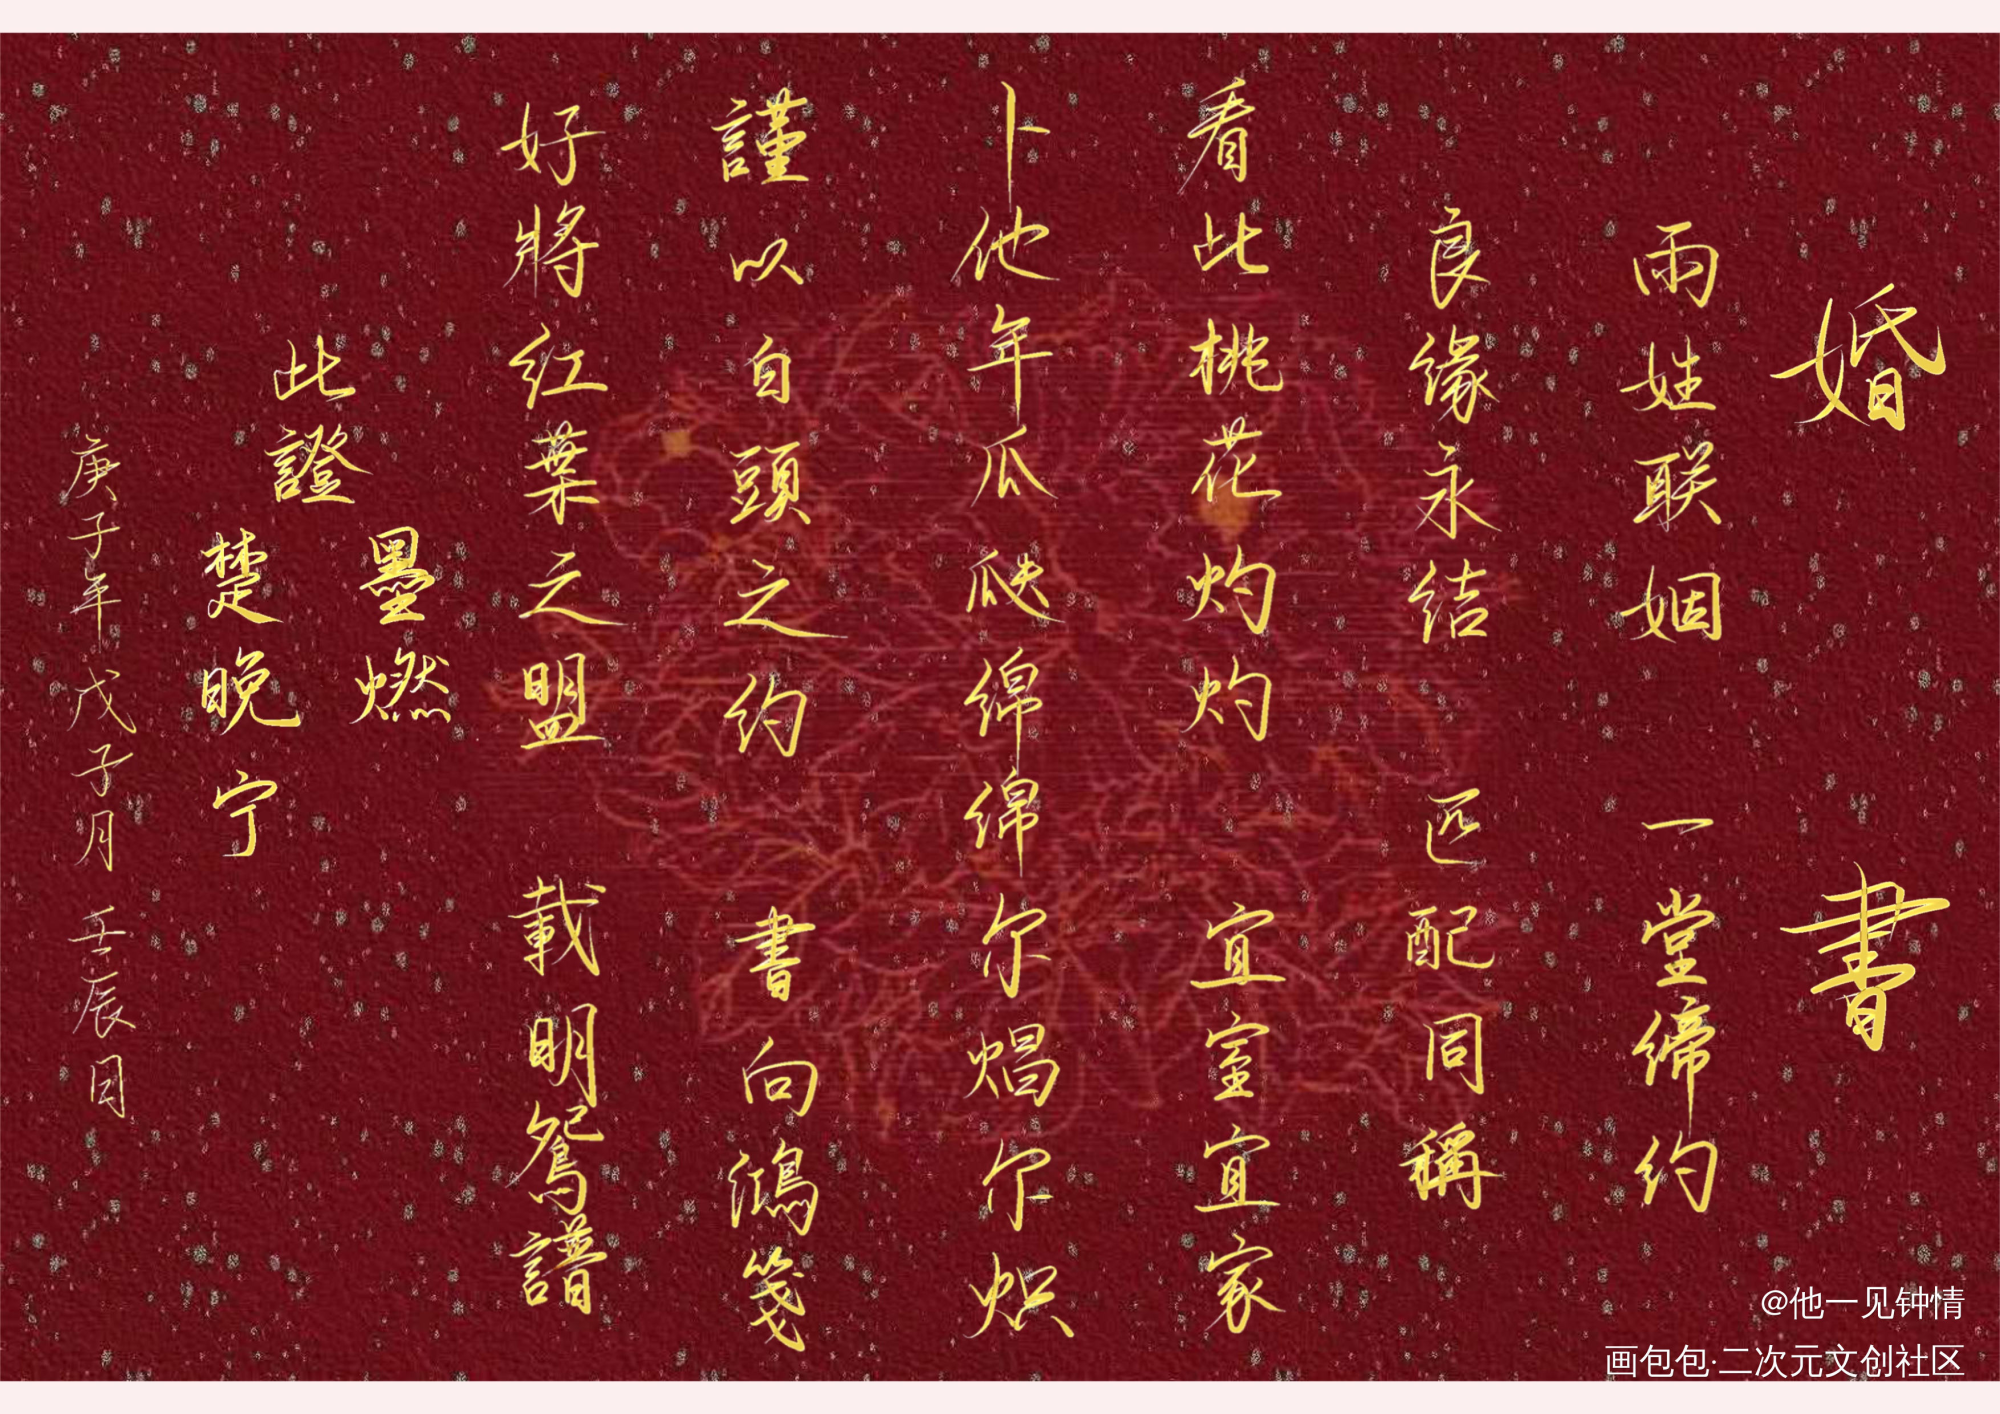 婚書
兩姓联姻 一堂締约
良缘永结 匹配同稱
看此桃花灼灼 宜室宜家
卜他年瓜瓞绵绵 尔焻尔炽
謹以白頭之约 書向鴻箋
好將红葉之盟 載明鴛譜
此證
墨燃
楚晚宁
庚子年 戊子月 壬辰日
@他一见钟情
画包包·二次元文创社区